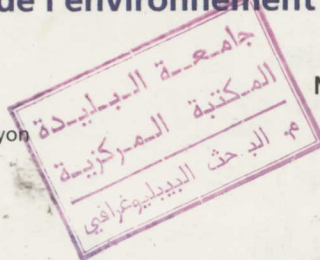 de l'environnement
yon
جامعة البليدة
المكتبة المركزية
م. البحث البيبليوغرافي